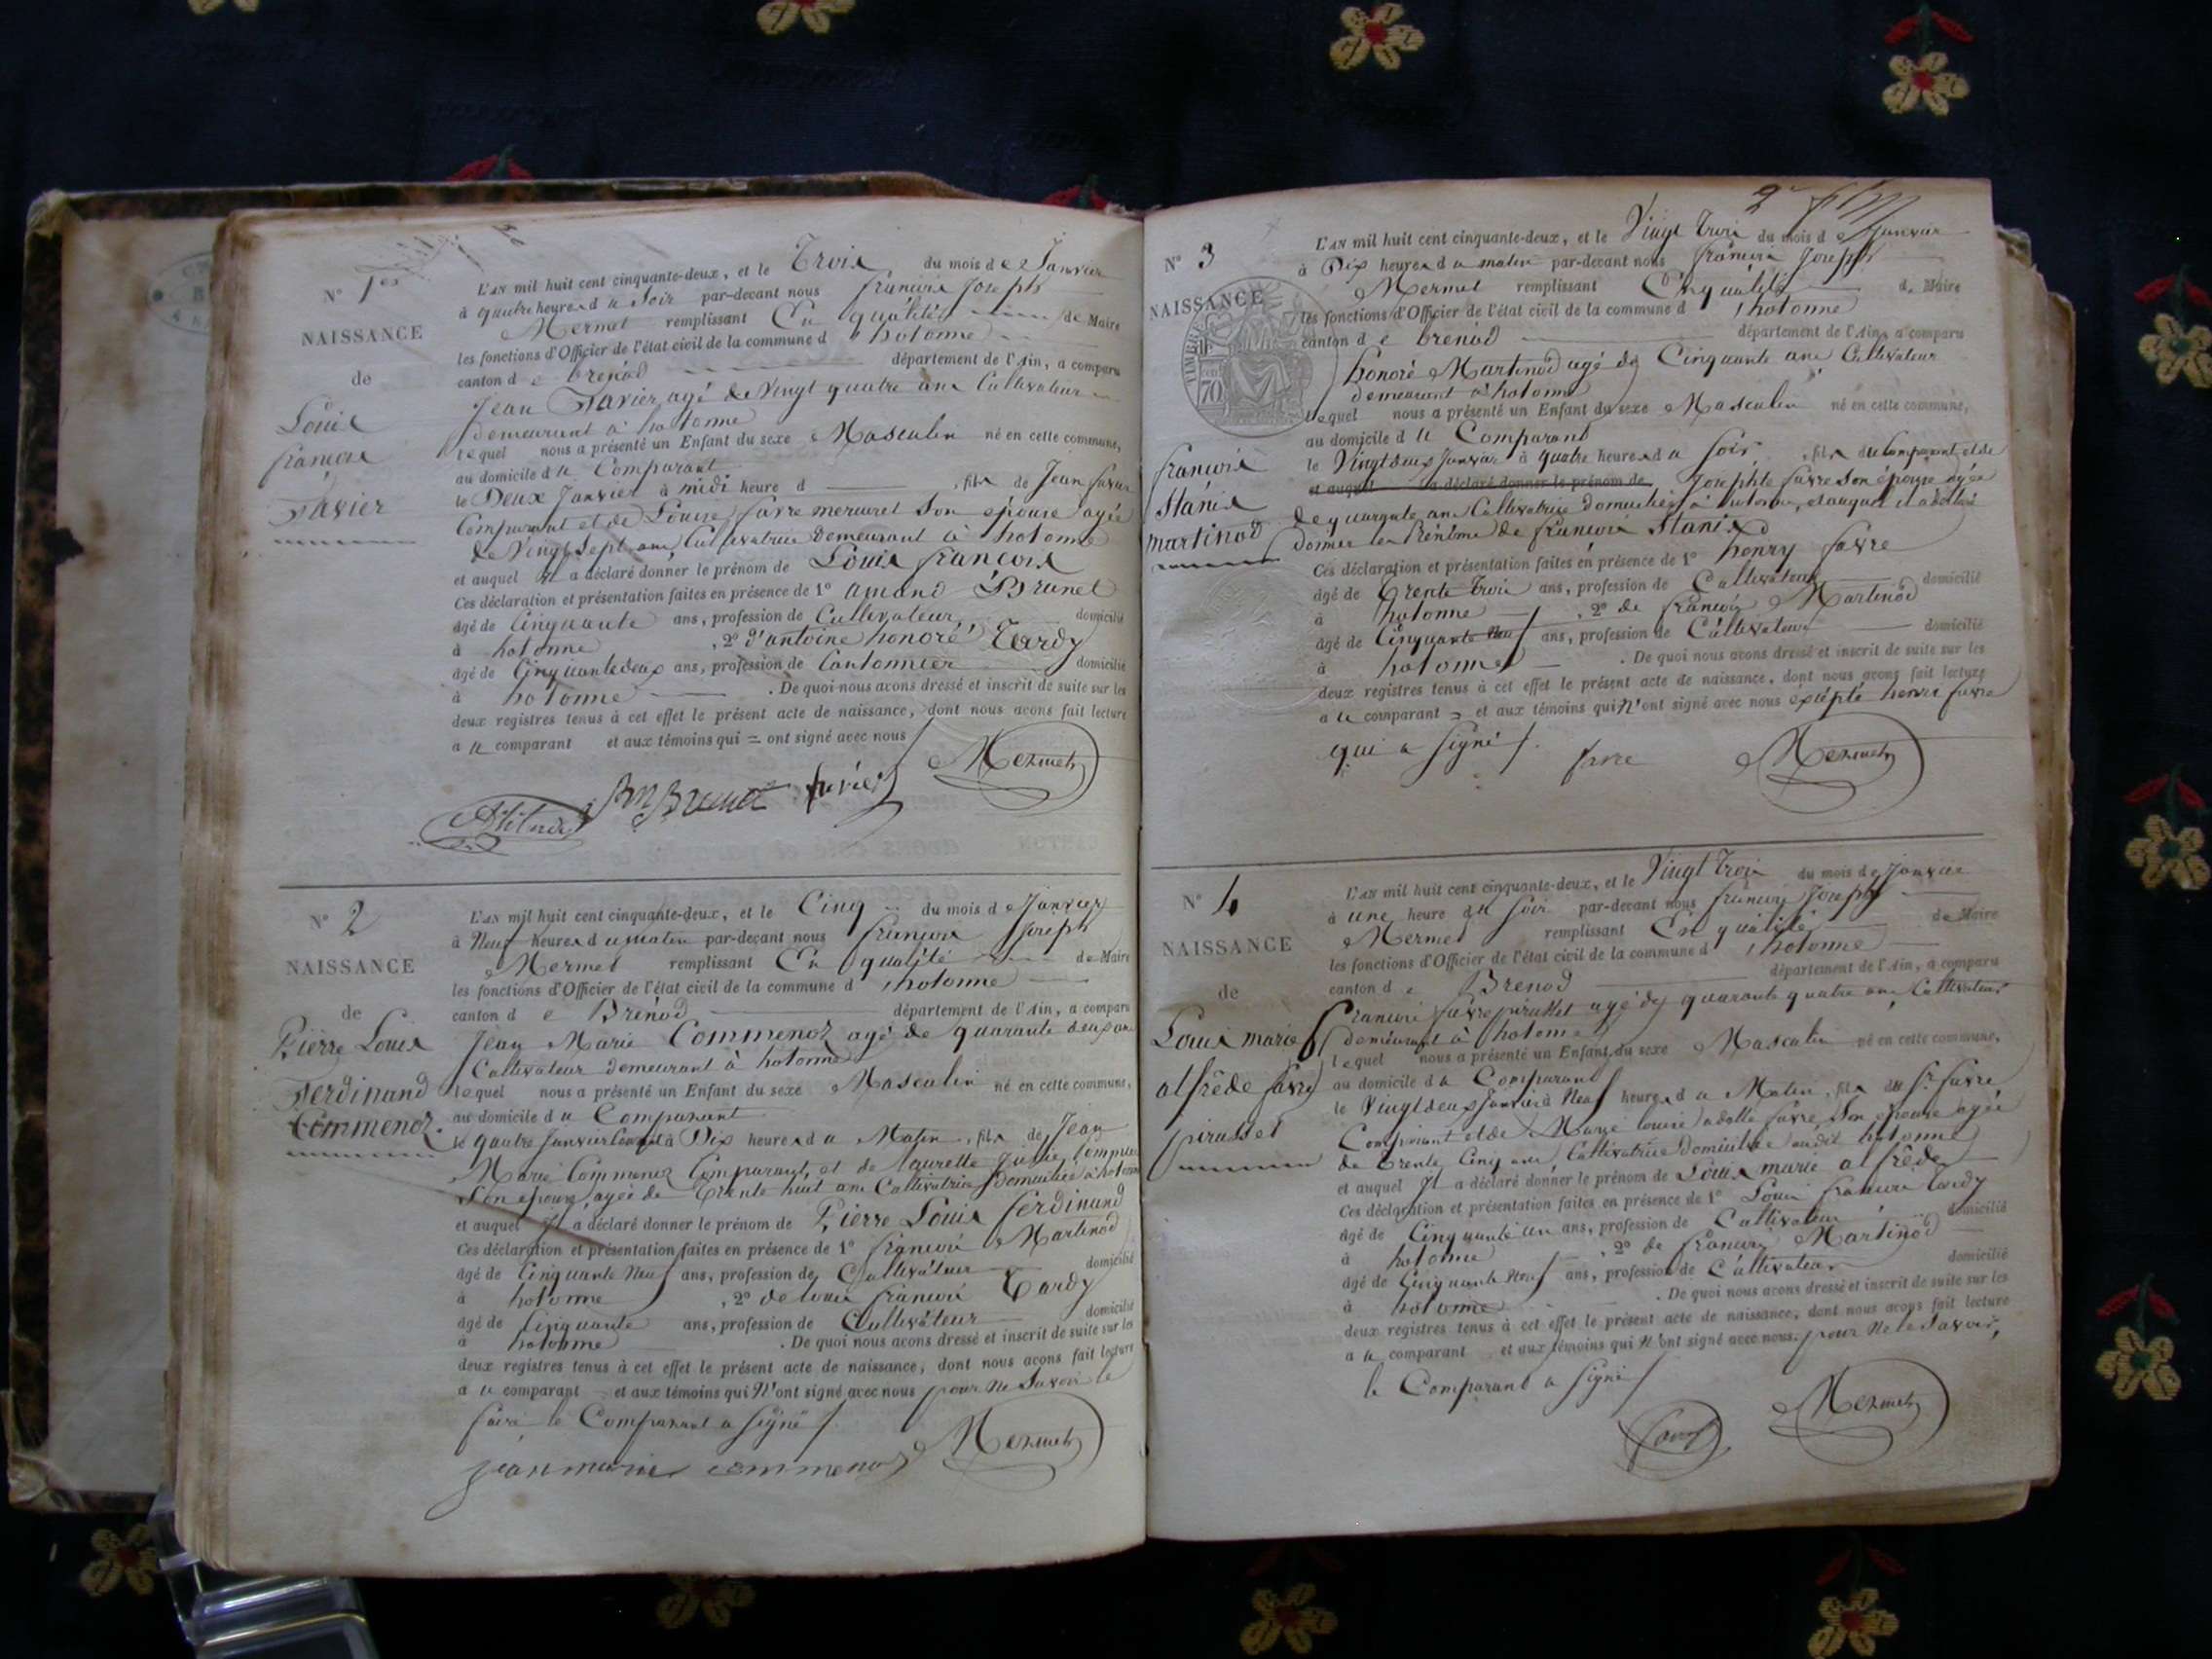 N° 1er
NAISSANCE
de
Louis
françois
Savier
L'AN mil huit cent cinquante-deux, et le Trois du mois de Janvier
à quatre heures du Soir par-devant nous françois Joseph
Mermet remplissant En qualité de Maire
les fonctions d'Officier de l'état civil de la commune d'hotonne
canton de brenod département de l'Ain, a comparu
Jean Savier agé de Vingt quatre ans Cultivateur
demeurant à hotonne
lequel nous a présenté un Enfant du sexe Masculin né en cette commune,
au domicile du Comparant
le Deux Janvier à midi heure d , fils de Jean
Comparant et de Louise favre mercuret Son épouse agée
de Vingt Sept ans Cultivatrice demeurant à hotonne
et auquel Il a déclaré donner le prénom de Louis françois
Ces déclaration et présentation faites en présence de 1° amand Brunet
âgé de Cinquante ans, profession de Cultivateur domicilié
à hotonne , 2° d'antoine honoré Tardy
âgé de Cinquante deux ans, profession de Cantonnier domicilié
à hotonne . De quoi nous avons dressé et inscrit de suite sur les
deux registres tenus à cet effet le présent acte de naissance, dont nous avons fait lecture
a le comparant et aux témoins qui = ont signé avec nous
Mermet
N° 2
NAISSANCE
de
Pierre Louis
Ferdinand
Commenoz
L'AN mil huit cent cinquante-deux, et le Cinq du mois de Janvier
à Neuf heures du matin par-devant nous françois Joseph
Mermet remplissant En qualité de Maire
les fonctions d'Officier de l'état civil de la commune d'hotonne
canton de Brénod département de l'Ain, a comparu
Jean Marie Commenoz agé de quarante deux ans
Cultivateur demeurant à hotonne
lequel nous a présenté un Enfant du sexe Masculin né en cette commune,
au domicile du Comparant
le quatre Janvier à Dix heures du Matin, fils de Jean
Marie Commenoz Comparant, et de Laurette
Son épouse agée de Trente huit ans Cultivatrice Domiciliée à hotonne
et auquel Il a déclaré donner le prénom de Pierre Louis ferdinand
Ces déclaration et présentation faites en présence de 1° françois Martinod
âgé de Cinquante Neuf ans, profession de Cultivateur domicilié
à hotonne , 2° de Louis françois Tardy
âgé de Cinquante ans, profession de Cultivateur domicilié
à hotonne . De quoi nous avons dressé et inscrit de suite sur les
deux registres tenus à cet effet le présent acte de naissance, dont nous avons fait lecture
a le comparant et aux témoins qui N'ont signé avec nous pour Ne Savoir le
faire le Comparant a Signé
jean marie commenoz Mermet
N° 3
NAISSANCE
TIMBRE
70
françois
Stanis
martinod
L'AN mil huit cent cinquante-deux, et le Vingt Trois du mois de Janvier
à Dix heures du matin par-devant nous françois Joseph
Mermet remplissant En qualité de Maire
les fonctions d'Officier de l'état civil de la commune d'hotonne
canton de brenod département de l'Ain, a comparu
honoré Martinod agé de Cinquante ans Cultivateur
demeurant à hotonne
lequel nous a présenté un Enfant du sexe Masculin né en cette commune,
au domicile du Comparant
le Vingt deux Janvier à quatre heures du Soir, fils du comparant et de
et auquel a déclaré donner le prénom de Josephte favre Son épouse agée
de quarante ans Cultivatrice domiciliée à hotonne, et auquel il a déclaré
donner les Prénoms de françois Stanis
Ces déclaration et présentation faites en présence de 1° henry favre
âgé de Trente Trois ans, profession de Cultivateur domicilié
à hotonne , 2° de françois Martinod
âgé de Cinquante Neuf ans, profession de Cultivateur domicilié
à hotonne . De quoi nous avons dressé et inscrit de suite sur les
deux registres tenus à cet effet le présent acte de naissance, dont nous avons fait lecture
a le comparant et aux témoins qui N'ont signé avec nous éxépté henri favre
qui a Signé
favre Mermet
N° 4
NAISSANCE
de
Louis marie
alfrêde favre
pirusset
L'AN mil huit cent cinquante-deux, et le Vingt Trois du mois de Janvier
à une heure du Soir par-devant nous françois Joseph
Mermet remplissant En qualité de Maire
les fonctions d'Officier de l'état civil de la commune d'hotonne
canton de Brenod département de l'Ain, a comparu
françois favre pirusset agé de quarante quatre ans Cultivateur
demeurant à hotonne
lequel nous a présenté un Enfant du sexe Masculin né en cette commune,
au domicile du Comparant
le Vingt deux Janvier à Neuf heures du Matin, fils du Sr favre
Comparant et de Marie louise favre Son épouse agée
de Trente Cinq ans Cultivatrice Domiciliée audit hotonne
et auquel Il a déclaré donner le prénom de Louis marie alfrêde
Ces déclaration et présentation faites en présence de 1° Louis françois Tardy
âgé de Cinquante un ans, profession de Cultivateur domicilié
à hotonne , 2° de françois Martinod
âgé de Cinquante Neuf ans, profession de Cultivateur domicilié
à hotonne . De quoi nous avons dressé et inscrit de suite sur les
deux registres tenus à cet effet le présent acte de naissance, dont nous avons fait lecture
a le comparant et aux témoins qui N'ont signé avec nous pour Ne le Savoir,
le Comparant a Signé
Mermet